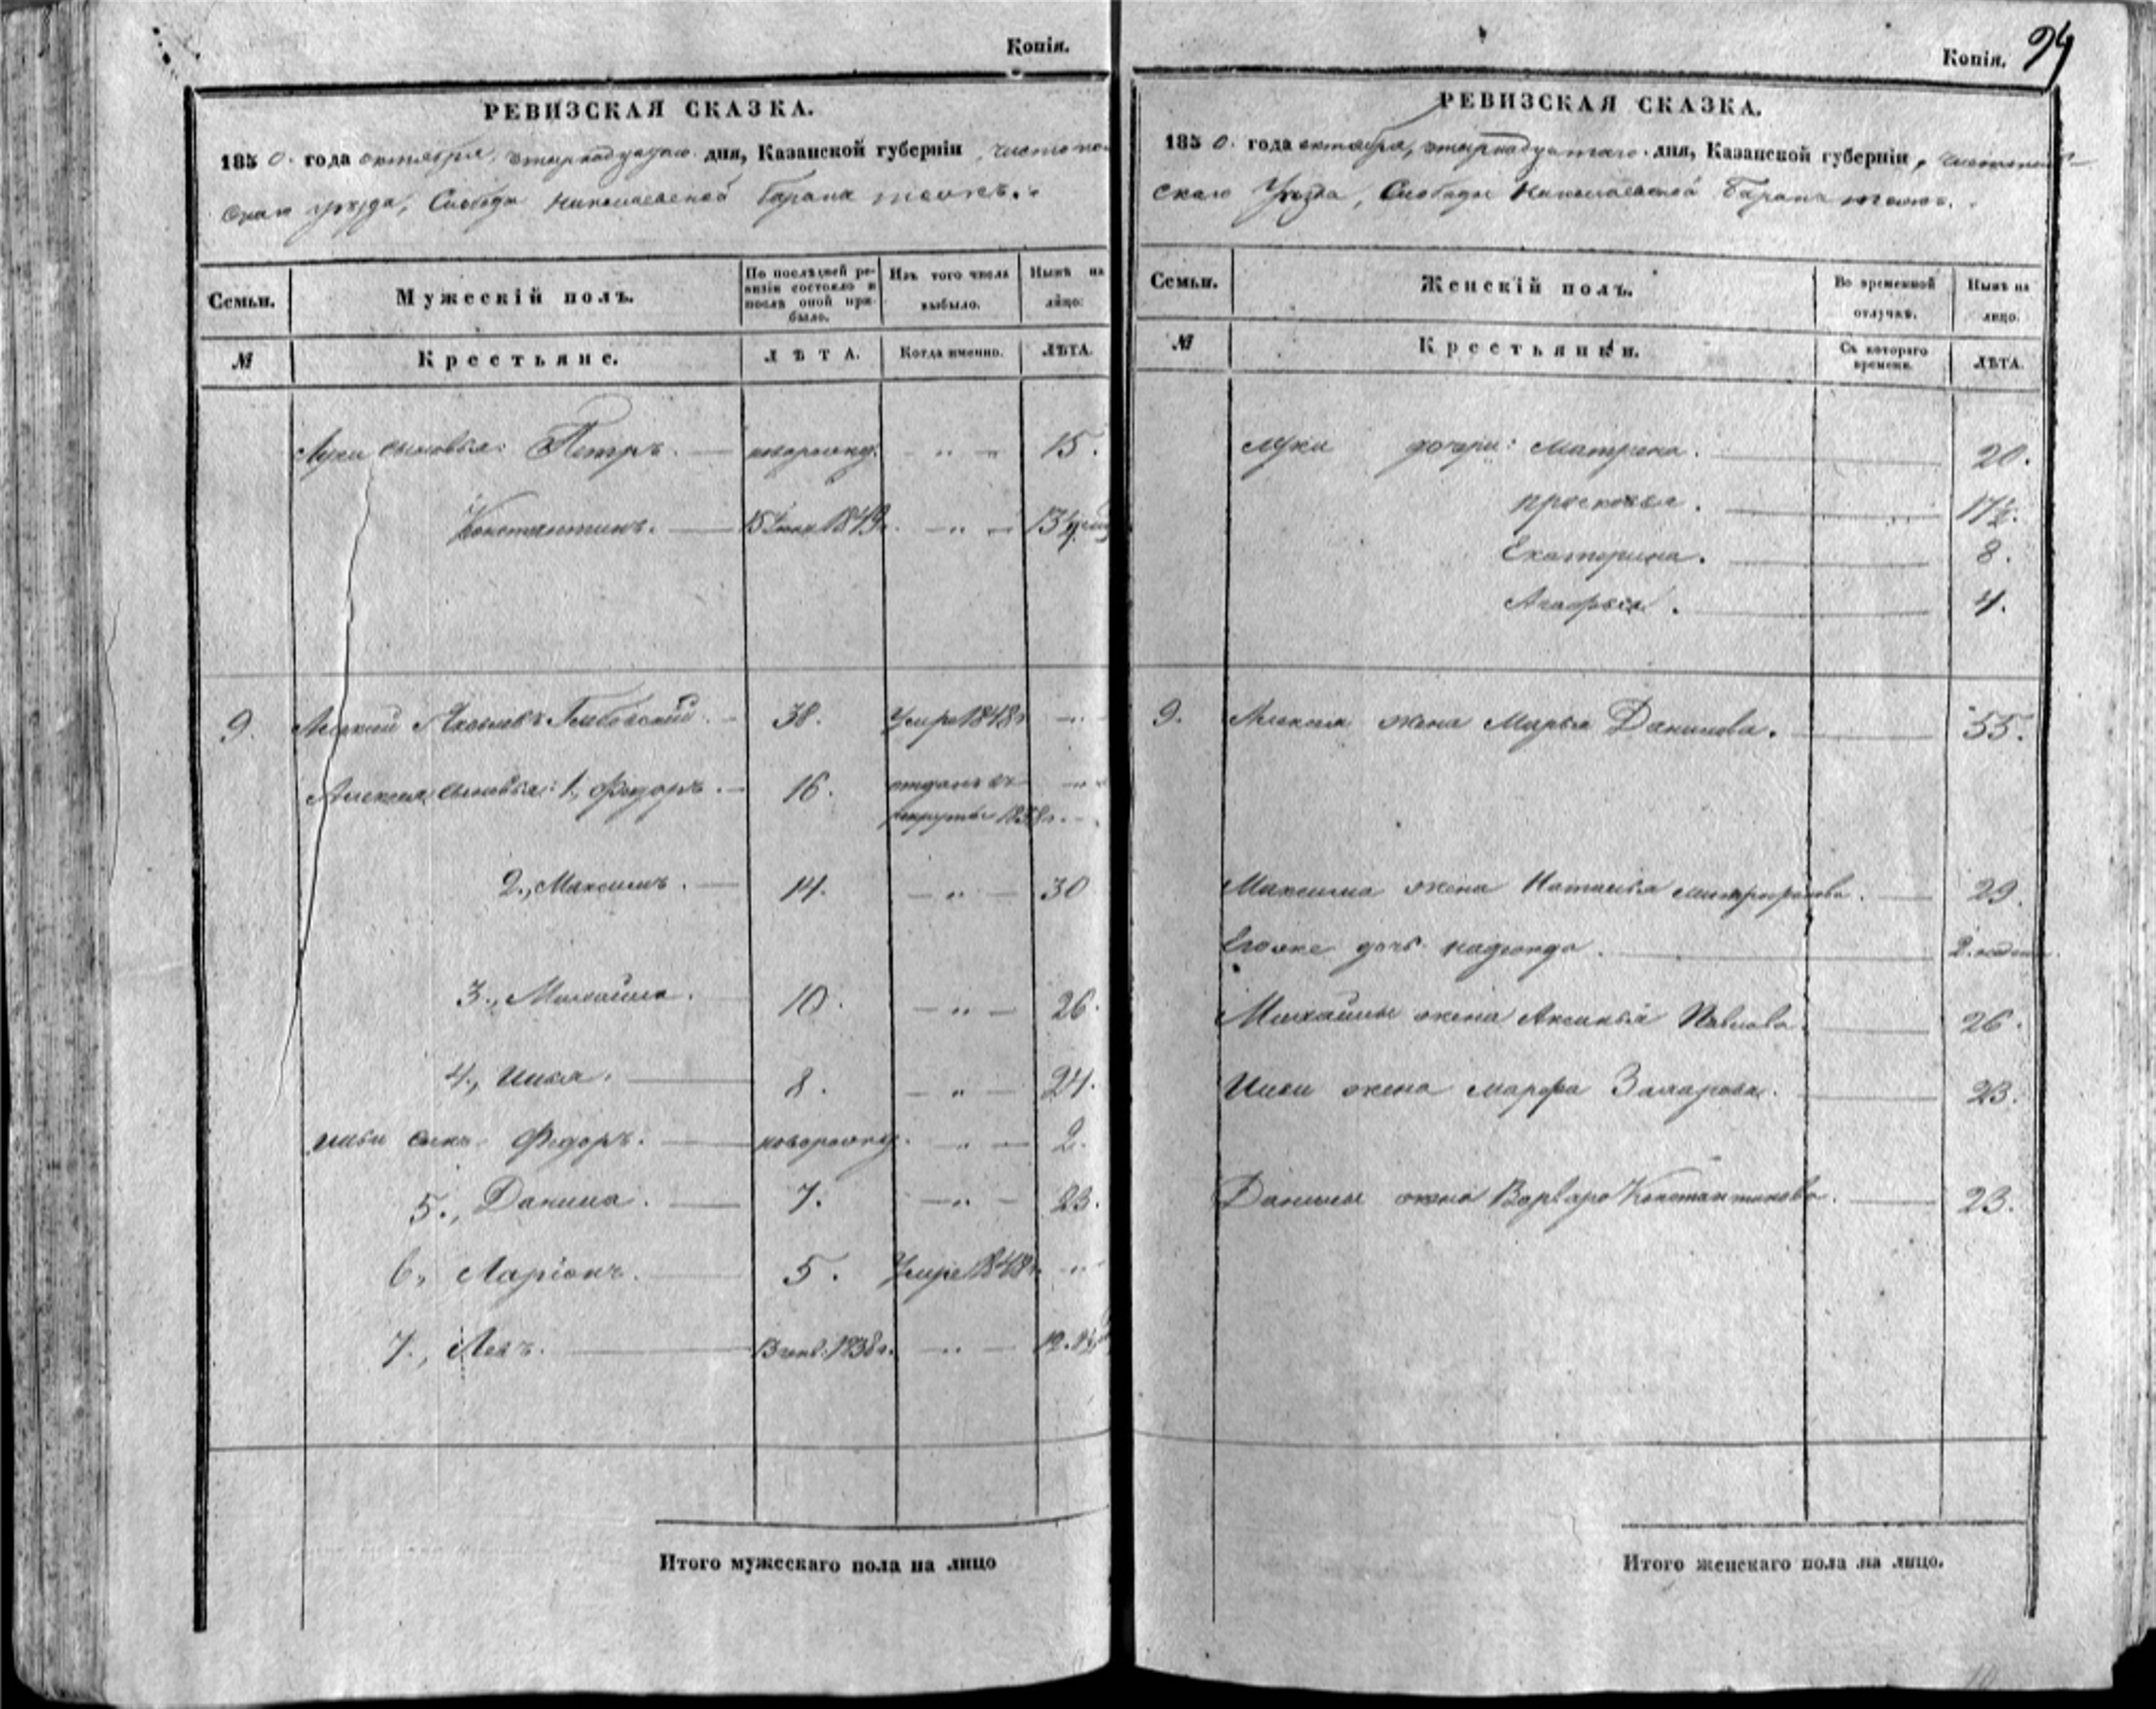 Копія.
РЕВИЗСКАЯ СКАЗКА.
1850. года октября, четырнадцатаго дня, Казанской губерніи, Чистополь-
скаго Уѣзда, Слободы Николаевской Баранъ тожъ.
Семьи. Мужескій полъ. По послѣдней ре- визіи состояло и послѣ оной при- было. Изъ того числа выбыло. Нынѣ на лицо.
№ Крестьяне. ЛѢТА. Когда именно. ЛѢТА.
Луки сыновья: Петръ. — новорожд. — " — 15.
Константинъ. — 15 1849г. — " —
9. Алексѣй Яковлевъ — 38. Умре 1848г. — " —
Алексѣя сыновья: 1., Федоръ. — 16. отданъ въ — " —
рекруты 1838г. —
2., Максимъ. — 14. — " — 30
3., Михайла. 10. — " — 26.
4., Илья. — 8. — " — 24.
Ильи сынъ Федоръ. — новорожд. — " — 2.
5., Данила. — 7. — " — 23.
6., Ларіонъ. — 5. Умре 1848г. — " —
7., Левъ. — 13 янв. 1838г. — " — 12.
Итого мужескаго пола на лицо
Копія. 94
РЕВИЗСКАЯ СКАЗКА.
1850. года октября, четырнадцатаго дня, Казанской губерніи, Чистополь-
скаго Уѣзда, Слободы Николаевской Баранъ тожъ.
Семьи. Женскій полъ. Во временной отлучкѣ. Нынѣ на лицо.
№ Крестьянки. Съ котораго времени. ЛѢТА.
Луки дочери: Матрена. — 20.
Прасковья. — 17½.
Екатерина. — 8.
Агафья. — 4.
9. Алексѣя жена Марья Данилова. — 55.
Максима жена Наталья Митрофанова. — 29.
Егоже дочь Надежда. — 2. недели
Михайлы жена Аксинья Павлова. — 26.
Ильи жена Марфа Захарова. — 23.
Данилы жена Варвара Константинова. — 23.
Итого женскаго пола на лицо.